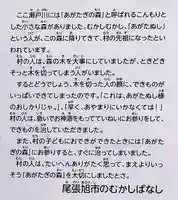 ここ瀬戸川には「あがたぎの森」と呼ばれるこんもりと
した小さな森がありました。むかしむかし、「あがたぬし」
という人が、この森に降りてきて、村の先祖になったとい
われています。
村の人は、森の木を大事にしていましたが、ときどき
そっと木を切ってしまう人がいました。
するとどうでしょう。木を切った人の顔に、できものが
いっぱいできてしまったのです。「これは、あがたぬし様
のおしかりじゃ。」、「早く、おやまりにいかなくては！」
村の人は、急いでお神酒をもっていねいにお参りをして、
できものを治していただきました。
また、村の子どもにおできができたときには「あがたぎ
の森」にお参りすると、すぐに治ってしまいました。
村の人は、たいへんありがたく思って、まえよりいっ
そう「あがたぎの森」を大切にしましたとさ。
尾張旭市のむかしばなし